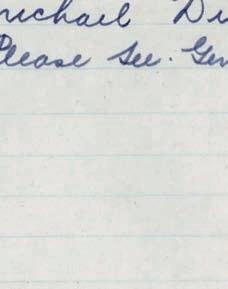 michael Di
Please See. Gen